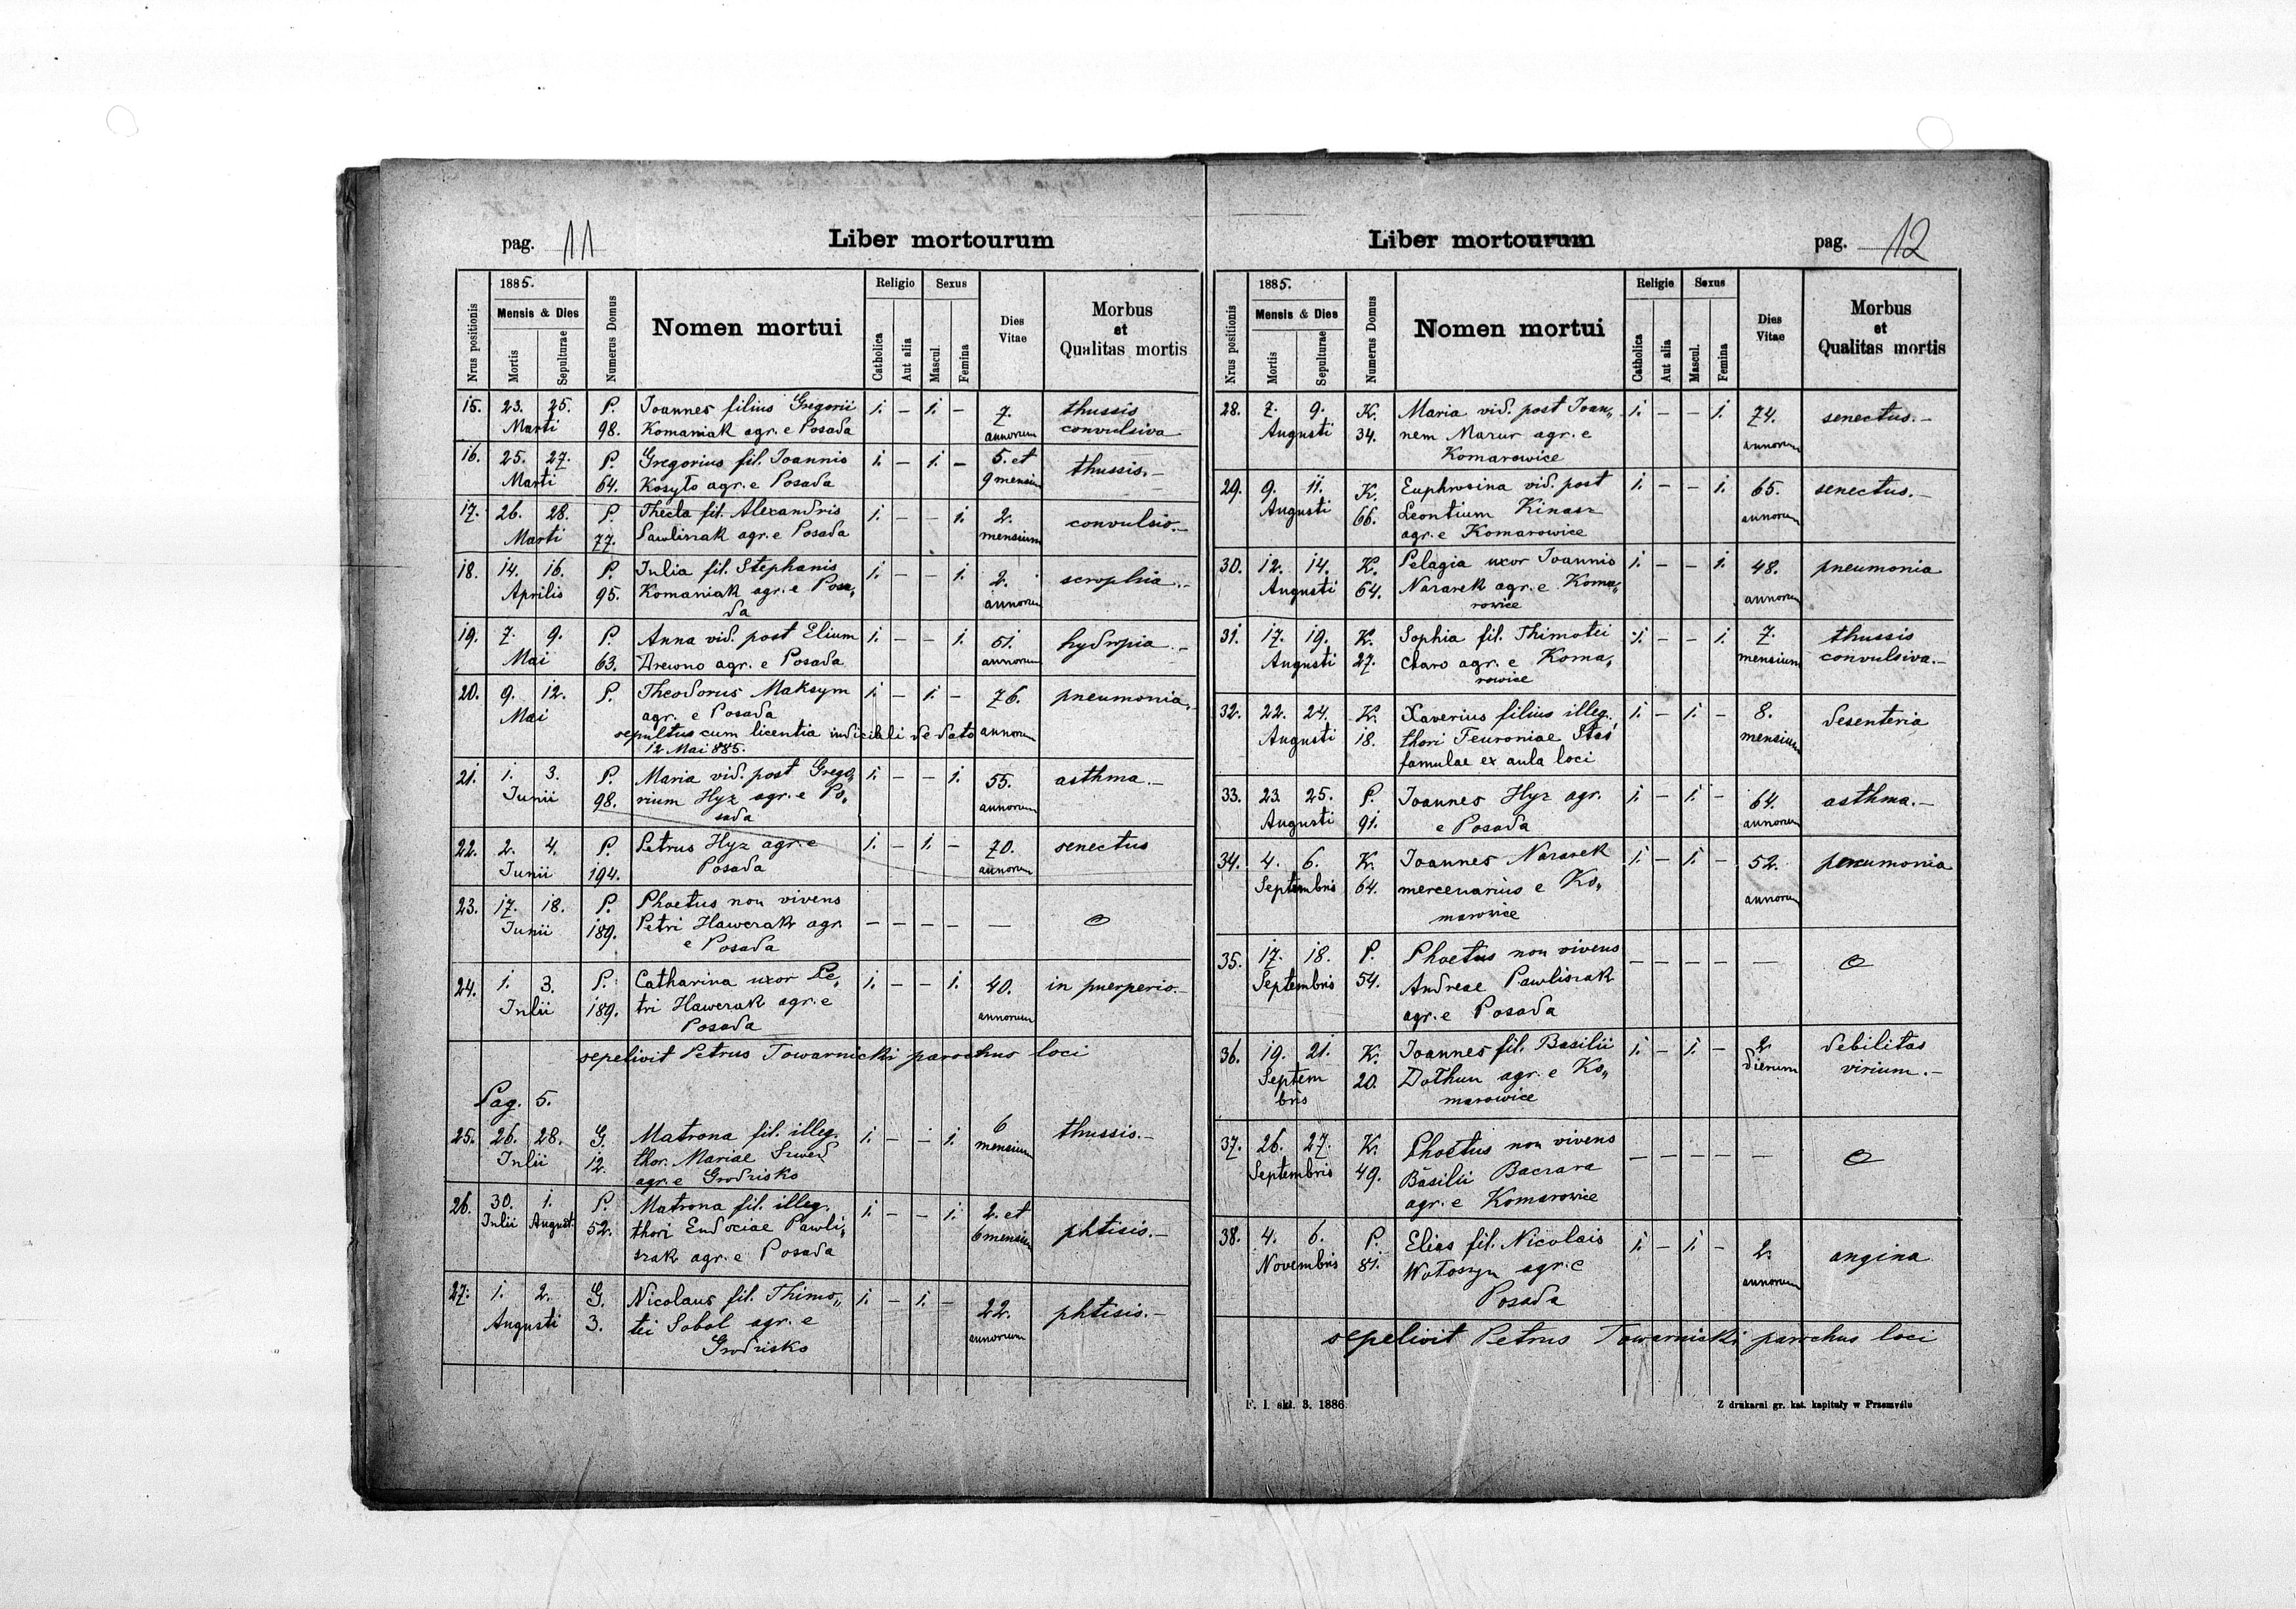 pag. 11
Liber mortourum
Nrus positionis
1885.
Mensis & Dies
Mortis
Sepulturae
Numerus Domus
Nomen mortui
Religio
Catholica
Aut alia
Sexus
Mascul.
Femina
Dies Vitae
Morbus
et
Qualitas mortis
15. 23. 25. P. Joannes filius Gregorii 1. – 1. – 7. thussis
Marti 98. Komaniak agr. e Posada annorum convulsiva
16. 25. 27. P. Gregorius fil. Joannis 1. – 1. – 5. et thussis.–
Marti 64. Kosyło agr. e Posada 9 mensium
17. 26. 28. P. Thecla fil. Alexandris 1. – – 1. 2. convulsio.–
Marti 77. Pawliszak agr. e Posada mensium
18. 14. 16. P. Julia fil. Stephanis 1. – – 1. 2. scrophia.–
Aprilis 95. Komaniak agr. e Posa„ annorum
da
19. 7. 9. P. Anna vid. post Elium 1. – – 1. 51. hydropia.–
Mai 63. Drewno agr. e Posada annorum
20. 9. 12. P. Theodorus Maksym 1. – 1. – 76. pneumonia.
Mai agr. e Posada
sepultus cum licentia judiciali de dato annorum
12 Mai 885.
21. 1. 3. P. Maria vid. post Grego„ 1. – – 1. 55. asthma.–
Junii 98. rium Hyz agr. e Po„ annorum
sada
22. 2. 4. P. Petrus Hyz agr. e 1. – 1. – 70. senectus
Junii 194. Posada annorum
23. 17. 18. P. Phoetus non vivens
Junii 189. Petri Hawczak agr. – – – – – 0
e Posada
24. 1. 3. P. Catharina uxor Pe„ 1. – – 1. 40. in puerperio.–
Julii 189. tri Hawczak agr. e annorum
Posada
sepelivit Petrus Towarnicki parochus loci
Pag. 5.
25. 26. 28. G. Matrona fil. illeg. 1. – – 1. 6 thussis.–
Julii 12. thor. Mariae Szwed mensium
agr. e Grodzisko
26. 30. 1. P. Matrona fil. illeg. 1. – – 1. 2. et phtisis.–
Julii August. 52. thori Eudociae Pawli„ 6 mensium
szak agr. e Posada
27. 1. 2. G. Nicolaus fil. Thimo„ 1. – 1. – 22. phtisis.–
Augusti 3. tei Sobol agr. e annorum
Grodzisko
Liber mortourum
pag. 12
Nrus positionis
1885.
Mensis & Dies
Mortis
Sepulturae
Numerus Domus
Nomen mortui
Religio
Catholica
Aut alia
Sexus
Mascul.
Femina
Dies Vitae
Morbus
et
Qualitas mortis
28. 7. 9. K. Maria vid. post Joan„ 1. – – 1. 74. senectus.–
Augusti 34. nem Mazur agr. e annorum
Komarowice
29. 9. 11. K. Euphrosina vid. post 1. – – 1. 65. senectus.–
Augusti 66. Leontium Kinasz annorum
agr. e Komarowice
30. 12. 14. K. Pelagia uxor Joannis 1. – – 1. 48. pneumonia
Augusti 64. Nazarek agr. e Koma„ annorum
rowice
31. 17. 19. K. Sophia fil. Thimotei 1. – – 1. 7. thussis
Augusti 27. agr. e Koma„ mensium convulsiva.–
rowice
32. 22. 24. K. Xaverius filius illeg. 1. – 1. – 8. desenteria
Augusti 18. thori Feuroniae Staś mensium
famulae ex aula loci
33. 23. 25. P. Joannes Hyz agr. 1. – 1. – 64. asthma.–
Augusti 91. e Posada annorum
34. 4. 6. K. Joannes Nazarek 1. – 1. – 52. pneumonia
Septembris 64. mercenarius e Ko„ annorum
marowice
35. 17. 18. P. Phoetus non vivens – – – – – 0
Septembris 54. Andreae Pawliszak
agr. e Posada
36. 19. 21. K. Joannes fil. Basilii 1. – 1. – 2 debilitas
Septem 20. Dothun agr. e Ko„ dierum virium.–
bris marowice
37. 26. 27. K. Phoetus non vivens – – – – – 0
Septembris 49. Basilii Baczara
agr. e Komarowice
38. 4. 6. P. Elias fil. Nicolais 1. – 1. – 2. angina
Novembris 81. Wołoszyn agr. e annorum
Posada
sepelivit Petrus Towarnicki parochus loci
F. I. skł. 3. 1886
Z drukarni gr. kat. kapituły w Przemyślu